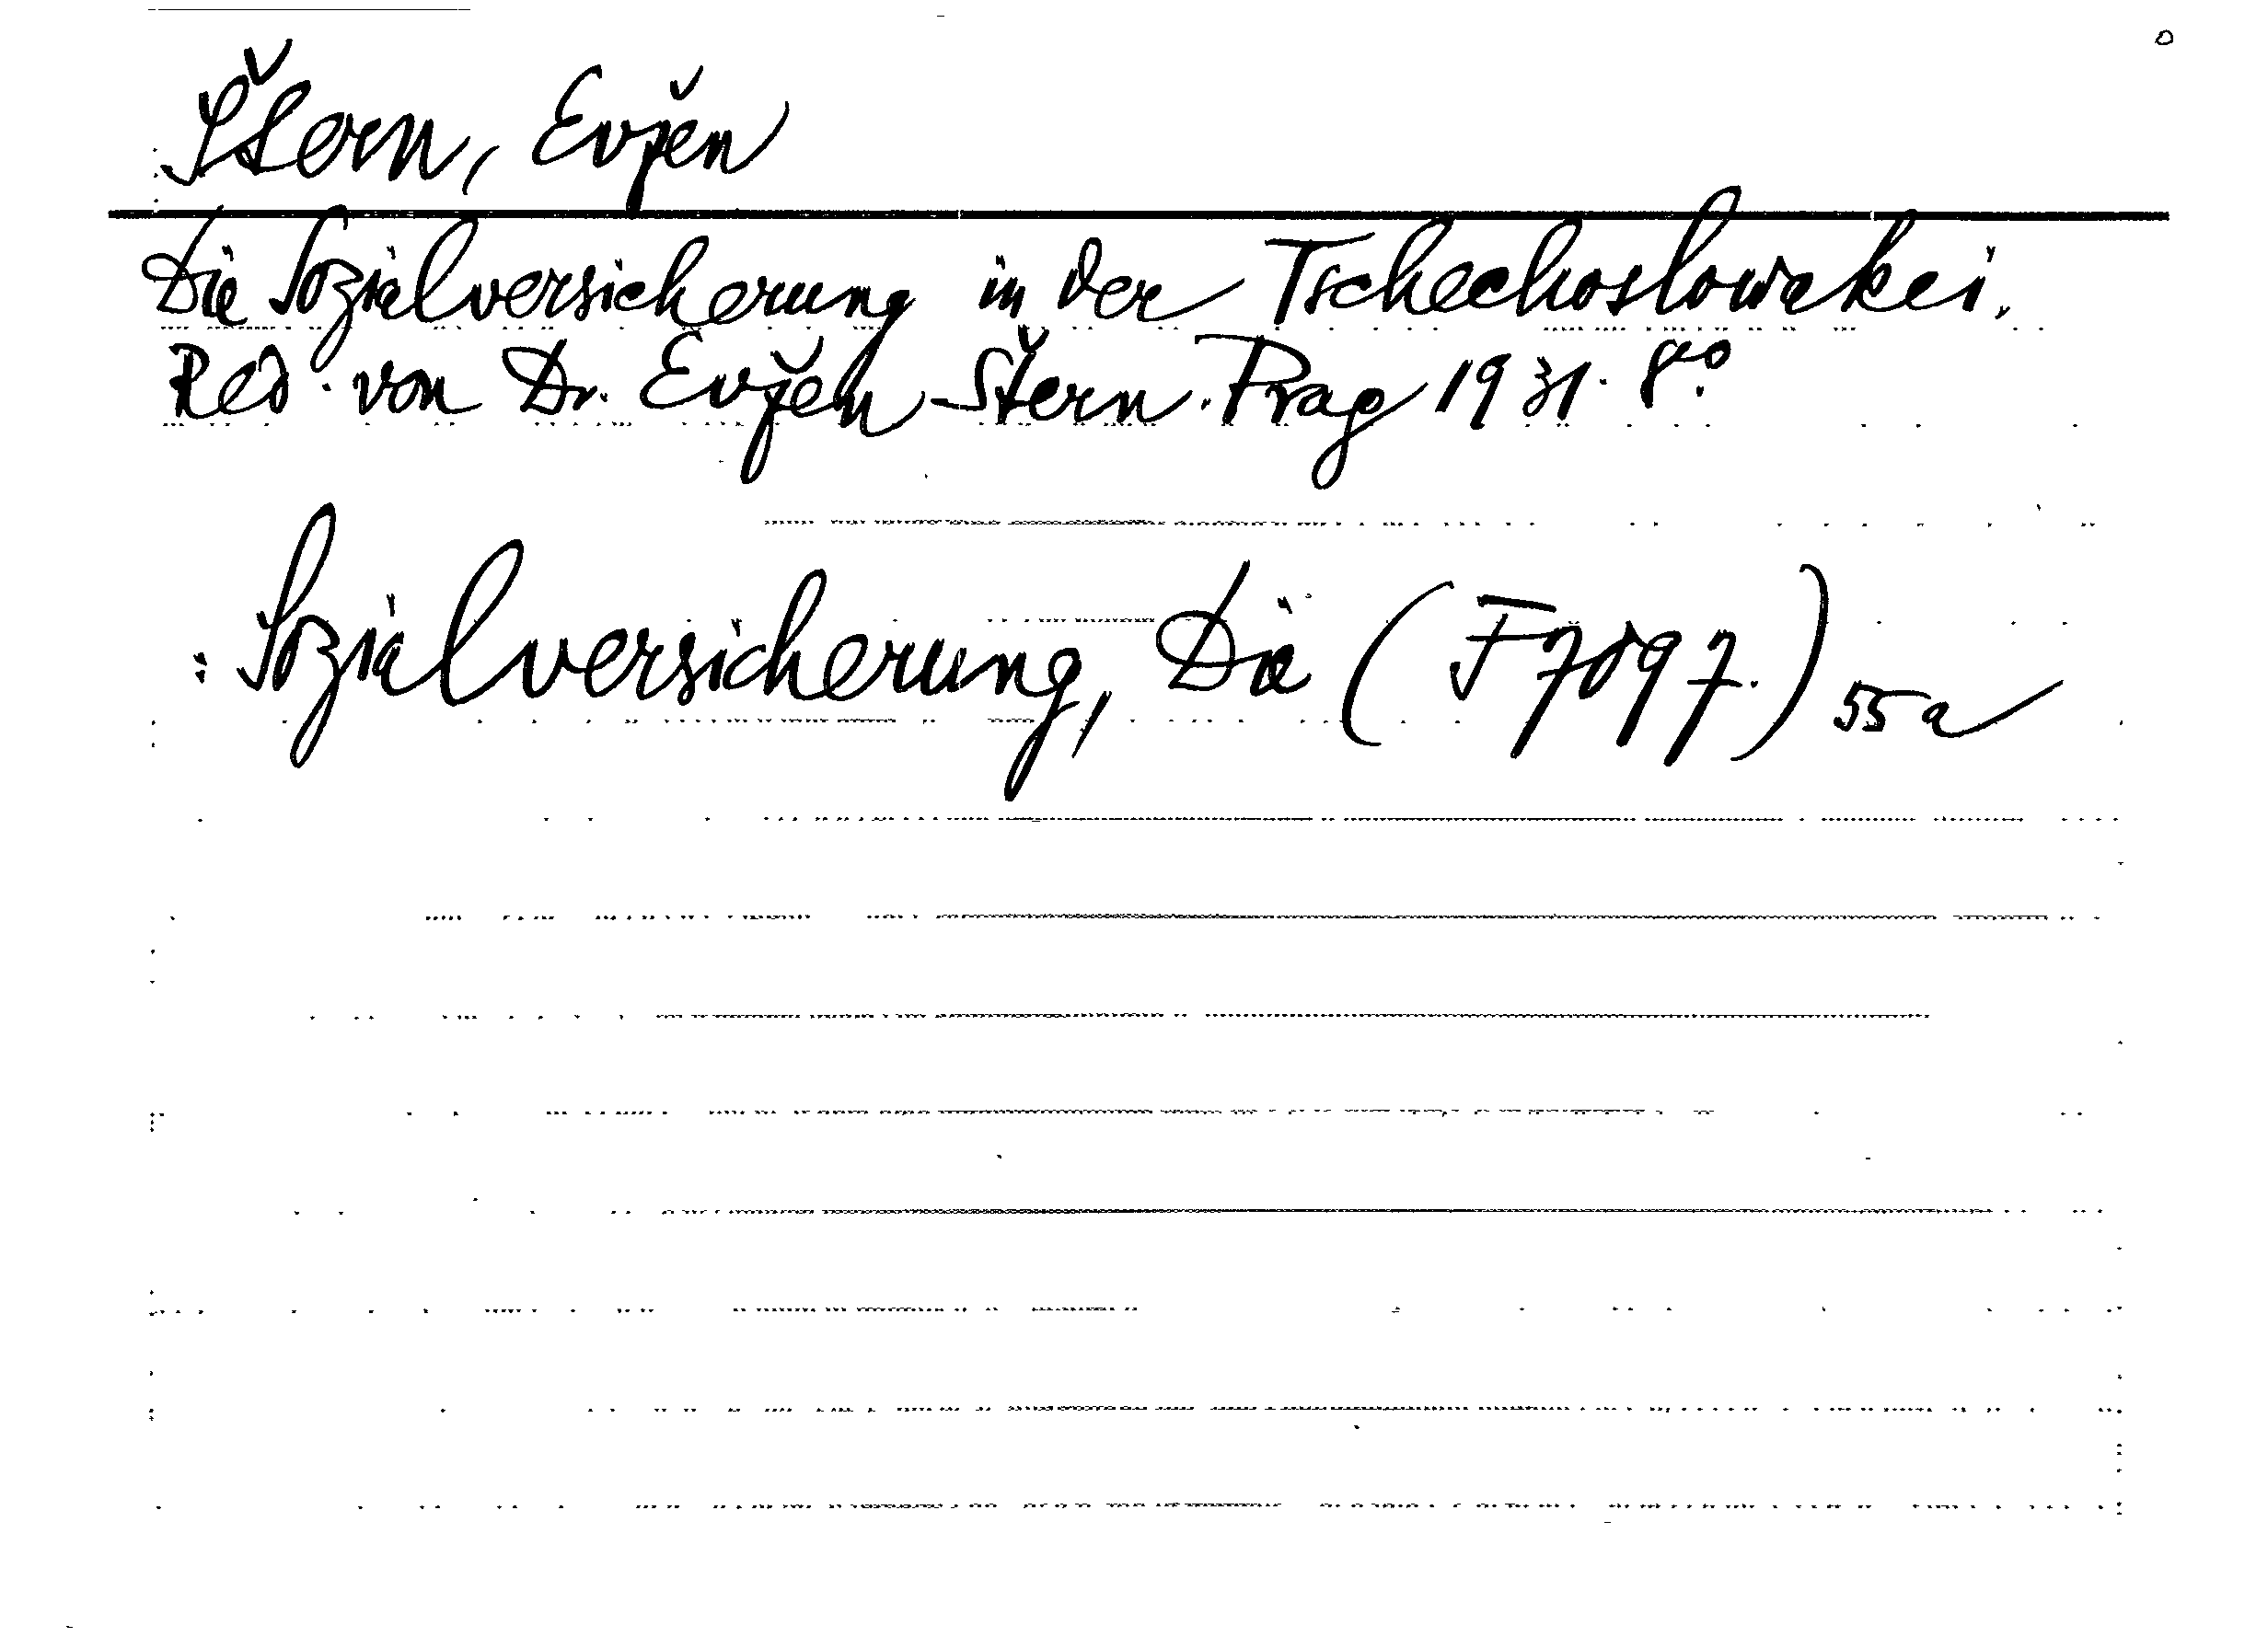 Štern, Evžen
Die Sozialversicherung in der Tschechoslowakei.
Red. von Dr. Evžen Štern. Prag 1931. 8.º
: Sozialversicherung, Die (F 7097.) 55a